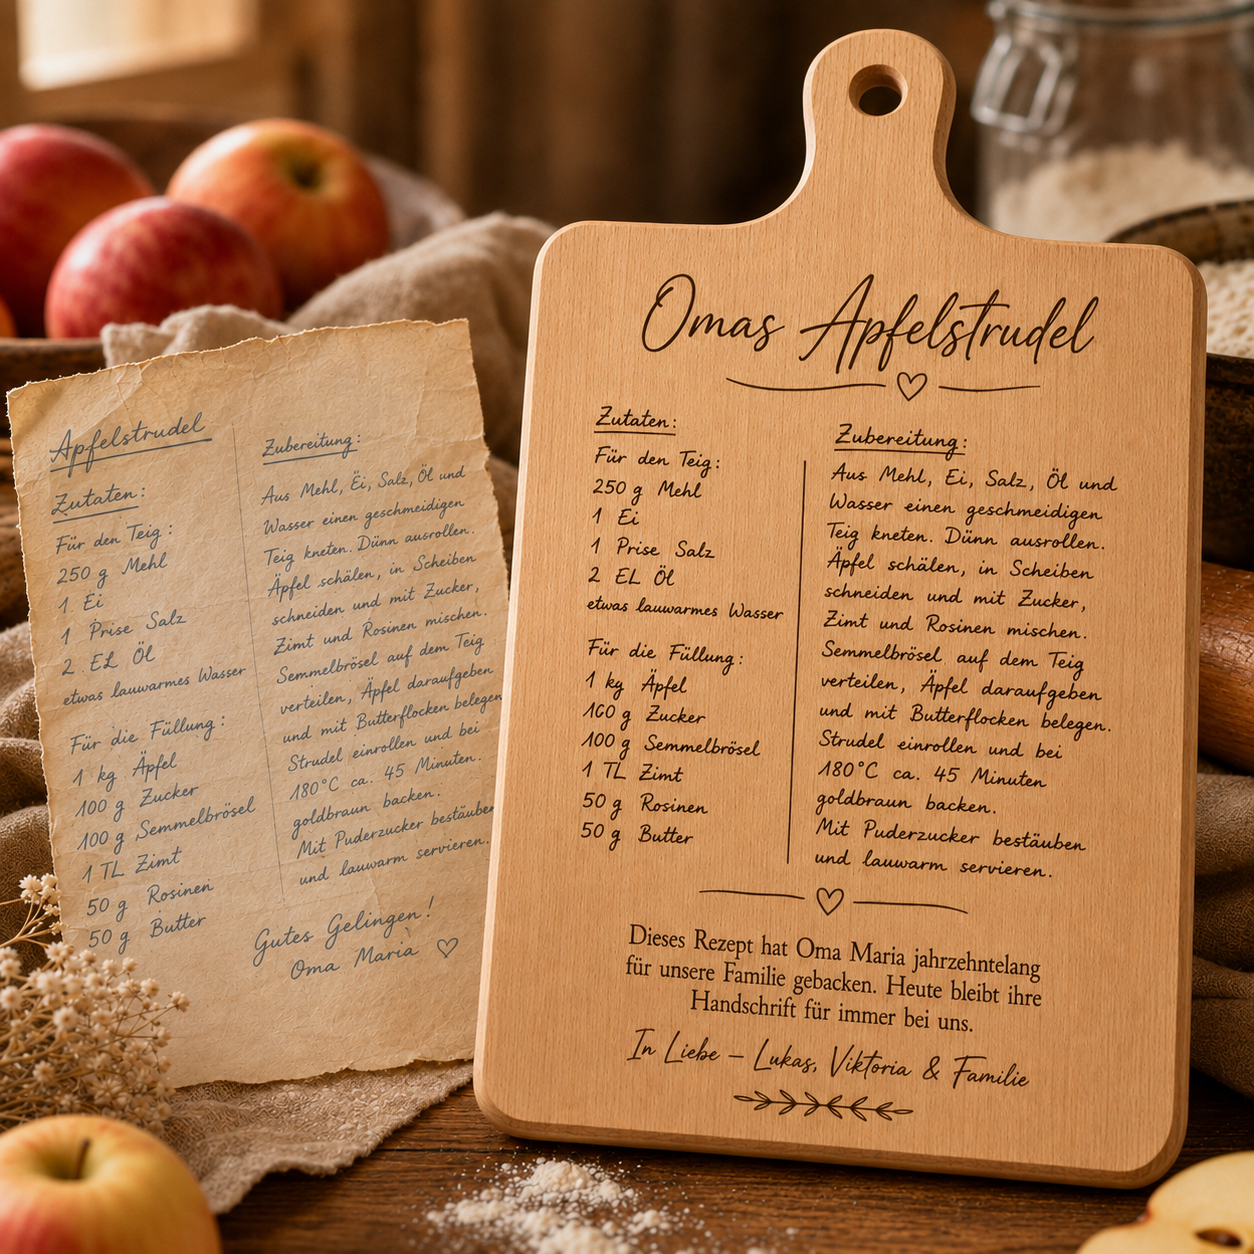 Apfelstrudel
Zutaten:
Für den Teig:
250 g Mehl
1 Ei
1 Prise Salz
2 EL Öl
etwas lauwarmes Wasser
Für die Füllung:
1 kg Äpfel
100 g Zucker
100 g Semmelbrösel
1 TL Zimt
50 g Rosinen
50 g Butter
Zubereitung:
Aus Mehl, Ei, Salz, Öl und
Wasser einen geschmeidigen
Teig kneten. Dünn ausrollen.
Äpfel schälen, in Scheiben
schneiden und mit Zucker,
Zimt und Rosinen mischen.
Semmelbrösel auf dem Teig
verteilen, Äpfel daraufgeben
und mit Butterflocken belegen
Strudel einrollen und bei
180°C ca. 45 Minuten.
goldbraun backen.
Mit Puderzucker bestäuben
und lauwarm servieren.
Gutes Gelingen!
Oma Maria ♡
Omas Apfelstrudel
Zutaten:
Für den Teig:
250 g Mehl
1 Ei
1 Prise Salz
2 EL Öl
etwas lauwarmes Wasser
Für die Füllung:
1 kg Äpfel
100 g Zucker
100 g Semmelbrösel
1 TL Zimt
50 g Rosinen
50 g Butter
Zubereitung:
Aus Mehl, Ei, Salz, Öl und
Wasser einen geschmeidigen
Teig kneten. Dünn ausrollen.
Äpfel schälen, in Scheiben
schneiden und mit Zucker,
Zimt und Rosinen mischen.
Semmelbrösel auf dem Teig
verteilen, Äpfel daraufgeben
und mit Butterflocken belegen.
Strudel einrollen und bei
180°C ca. 45 Minuten
goldbraun backen.
Mit Puderzucker bestäuben
und lauwarm servieren.
Dieses Rezept hat Oma Maria jahrzehntelang
für unsere Familie gebacken. Heute bleibt ihre
Handschrift für immer bei uns.
In Liebe – Lukas, Viktoria & Familie